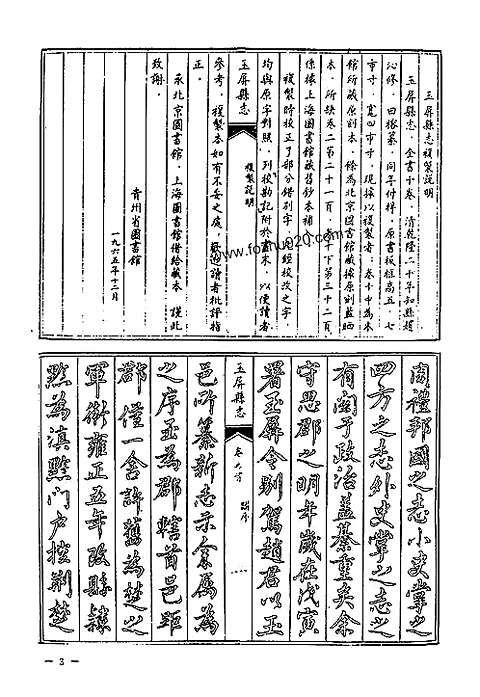 玉屏縣志複製説明
玉屏縣志,全書十卷,清乾隆二十年知縣趙
沁修,田榕纂,同年付梓,原書板框高五、七
市寸,寬四市寸,現據以複製者:卷十中為本
館所藏原刻本,餘為北京圖書館藏據原刻藍晒
本,所缺卷二第二十一頁,卷十下第三十二頁
係據上海圖書館藏舊鈔本補
複製時校正了部分錯別字,經校改之字,
均與原字對照,列校勘記附於書末,以便讀者
玉屏縣志
複製説明
參考,複製本如有不妥之處,歡迎讀者批評指
正。
承北京圖書館,上海圖書館借給藏本 謹此
致謝。
貴州省圖書館
一九六五年十二月
www.foehua20.com
周禮邦國之志小史掌之
四方之志外史掌之志之
有関于政治蓋綦重矣余
守思郡之明年歲在戊寅
署玉屏令別駕趙君以玉
玉屏縣志
卷之首
踏序
一
邑所纂新志示余属為
之序玉為郡轄首邑距
郡僅一舍許舊為楚之
軍衛雍正五年改縣隷
黔為滇黔門户控荆楚
— 3 —